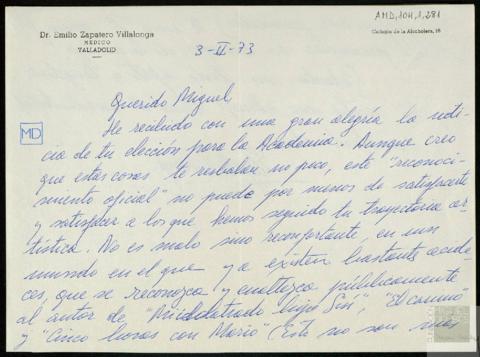 AMD,104,1,281
Dr. Emilio Zapatero Villalonga
MEDICO
VALLADOLID
Colegio de la Alcoholera, 16
3-II-73
Querido Miguel,
MD
He recibido con una gran alegría la noti-
cia de tu elección para la Academia. Aunque creo
que estas cosas te resbalan un poco, este "reconoci-
miento oficial" no puede por menos de satisfacerte
y satisfacer a los que hemos seguido tu trayectoria ar-
tística. No es malo sino reconfortante, en un
mundo en el que ya existen bastante
que se reconozca y enaltezca públicamente
al autor de "Mi idolatrado hijo Sisí", "El camino"
y "Cinco horas con Mario" (Este no son mas